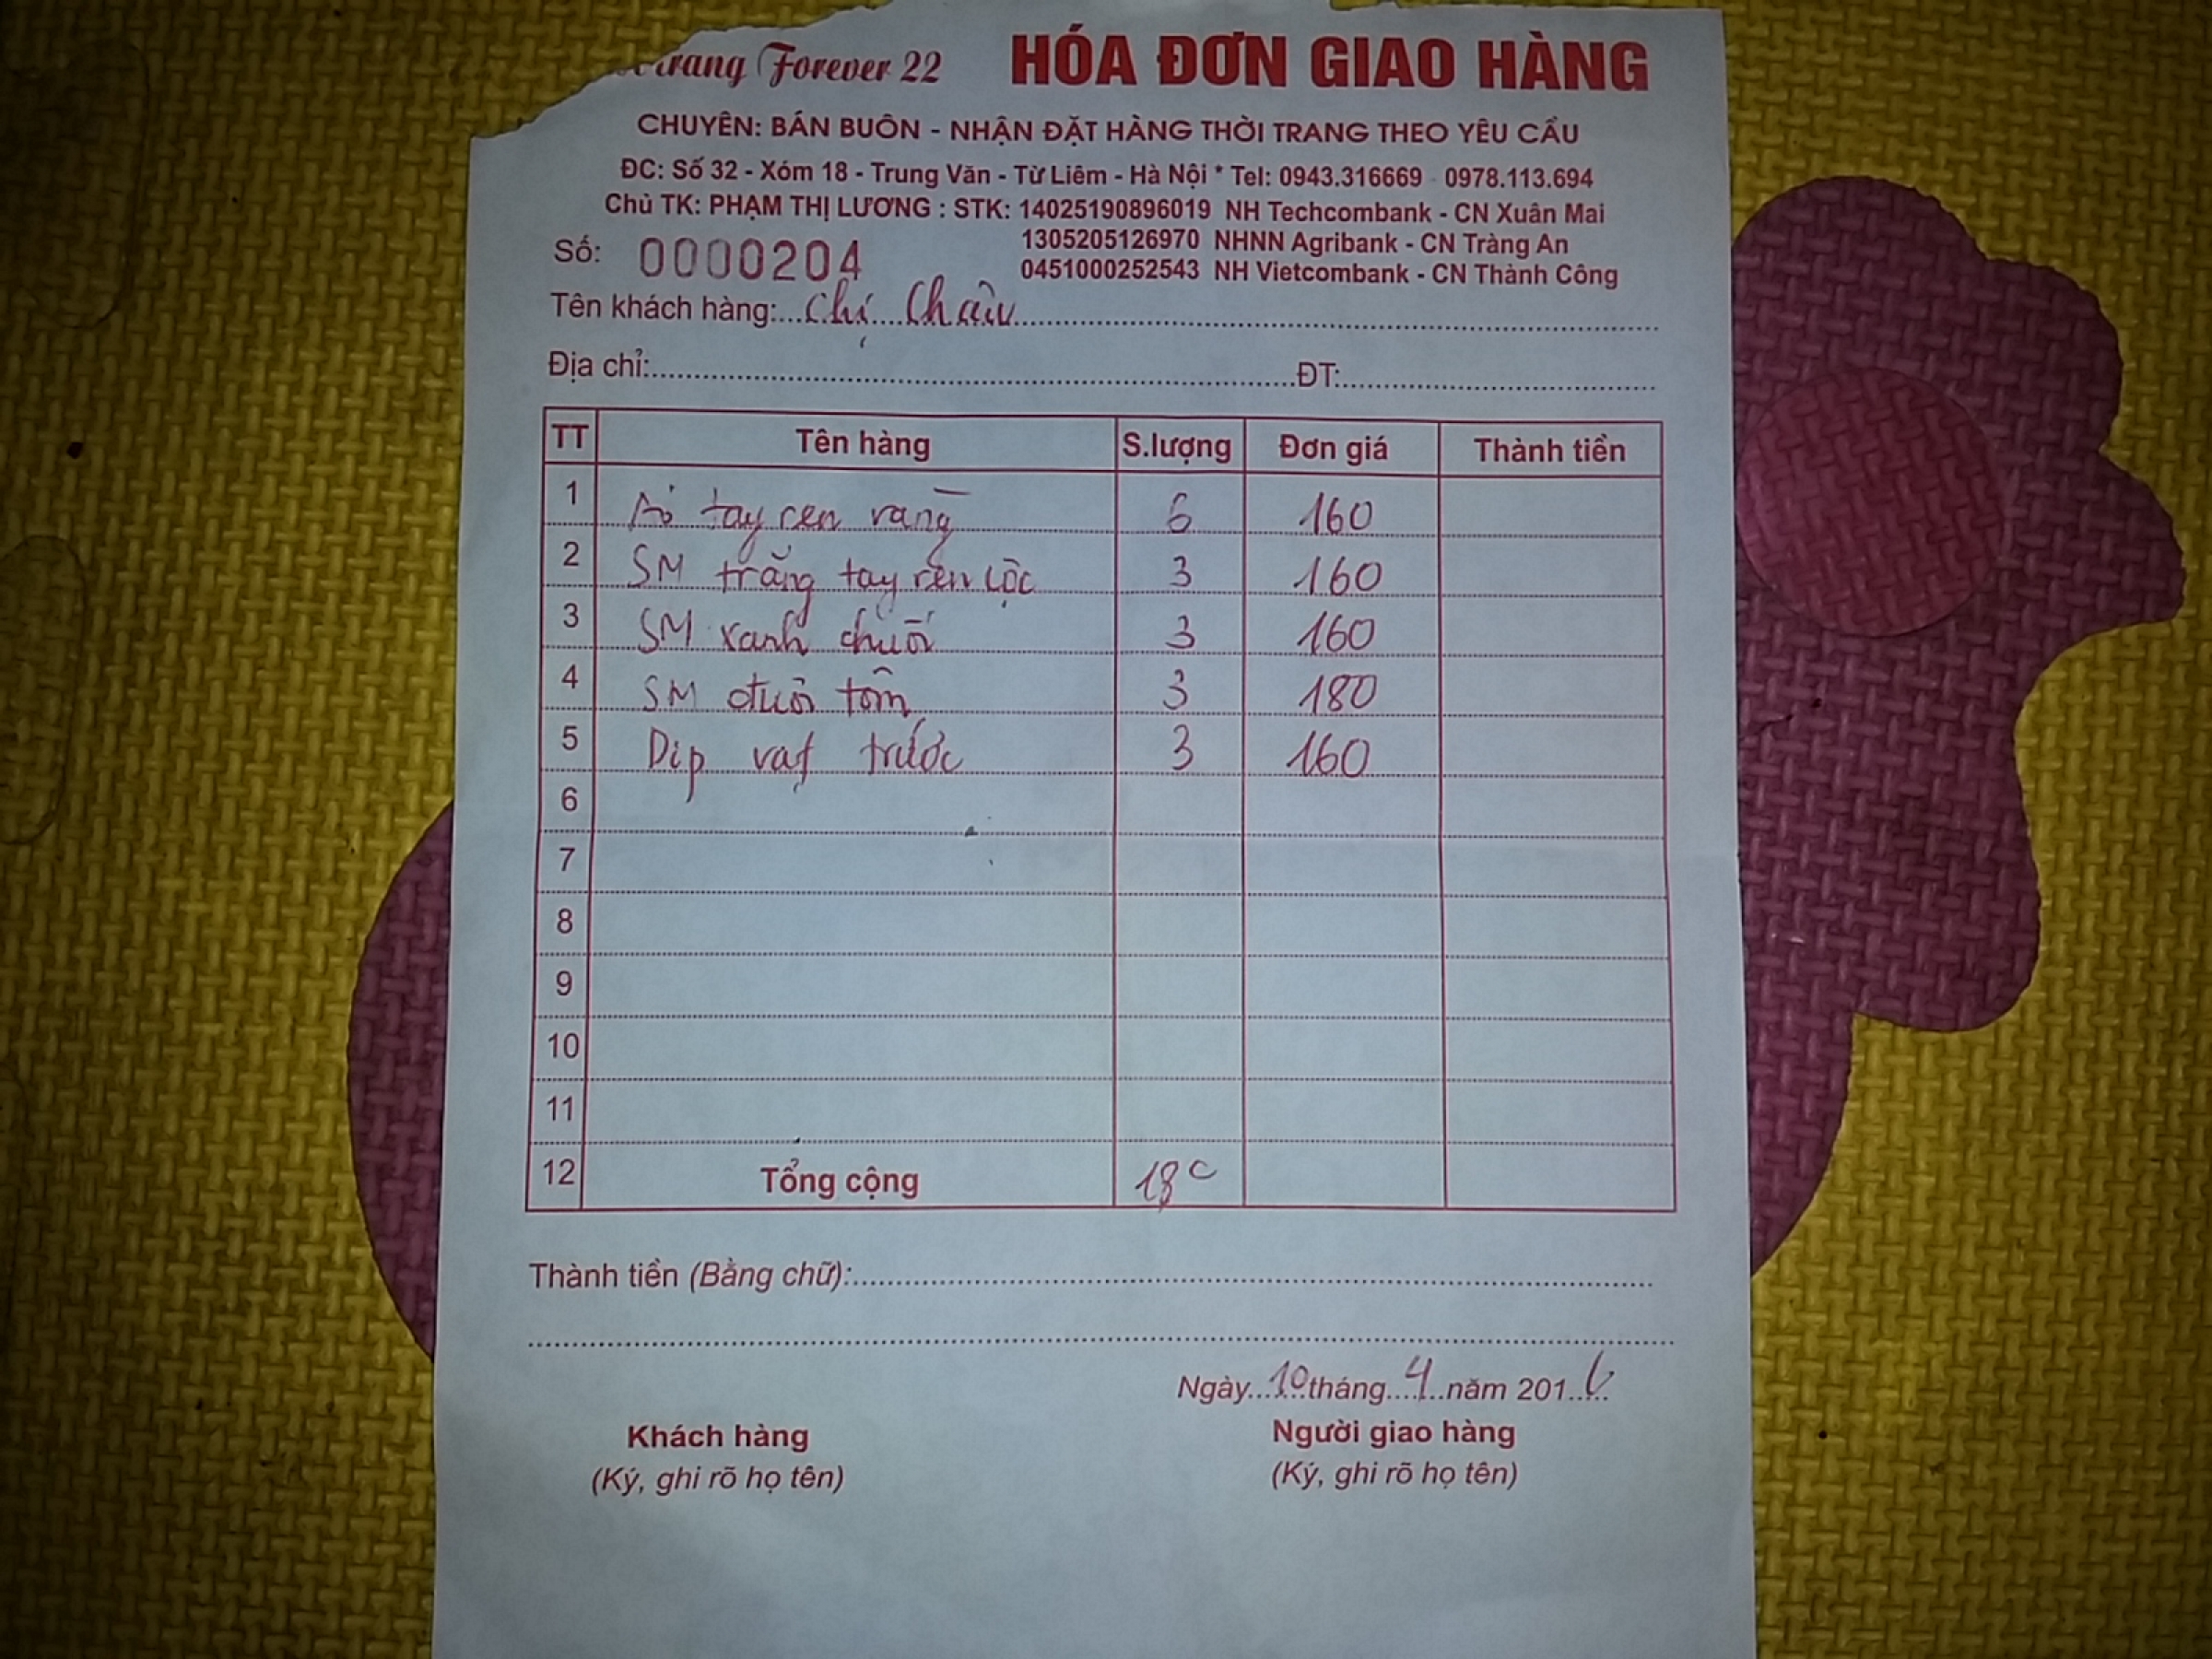 trang Forever 22 HÓA ĐƠN GIAO HÀNG
CHUYÊN: BÁN BUÔN - NHẬN ĐẶT HÀNG THỜI TRANG THEO YÊU CẦU
ĐC: Số 32 - Xóm 18 - Trung Văn - Từ Liêm - Hà Nội * Tel: 0943.316669 - 0978.113.694
Chủ TK: PHẠM THỊ LƯƠNG : STK: 14025190896019 NH Techcombank - CN Xuân Mai
1305205126970 NHNN Agribank - CN Tràng An
Số: 0000204
0451000252543 NH Vietcombank - CN Thành Công
Tên khách hàng: Chị Châu
Địa chỉ: ĐT:
TT Tên hàng S.lượng Đơn giá Thành tiền
1 Áo tay ren vàng 6 160
2 SM trắng tay ren 3 160
3 SM xanh chuối 3 160
4 SM đuôi tôm 3 180
5 Dip vạt trước 3 160
6
7
8
9
10
11
12 Tổng cộng 18c
Thành tiền (Bằng chữ):
Ngày 10 tháng 4 năm 2016
Khách hàng Người giao hàng
(Ký, ghi rõ họ tên) (Ký, ghi rõ họ tên)